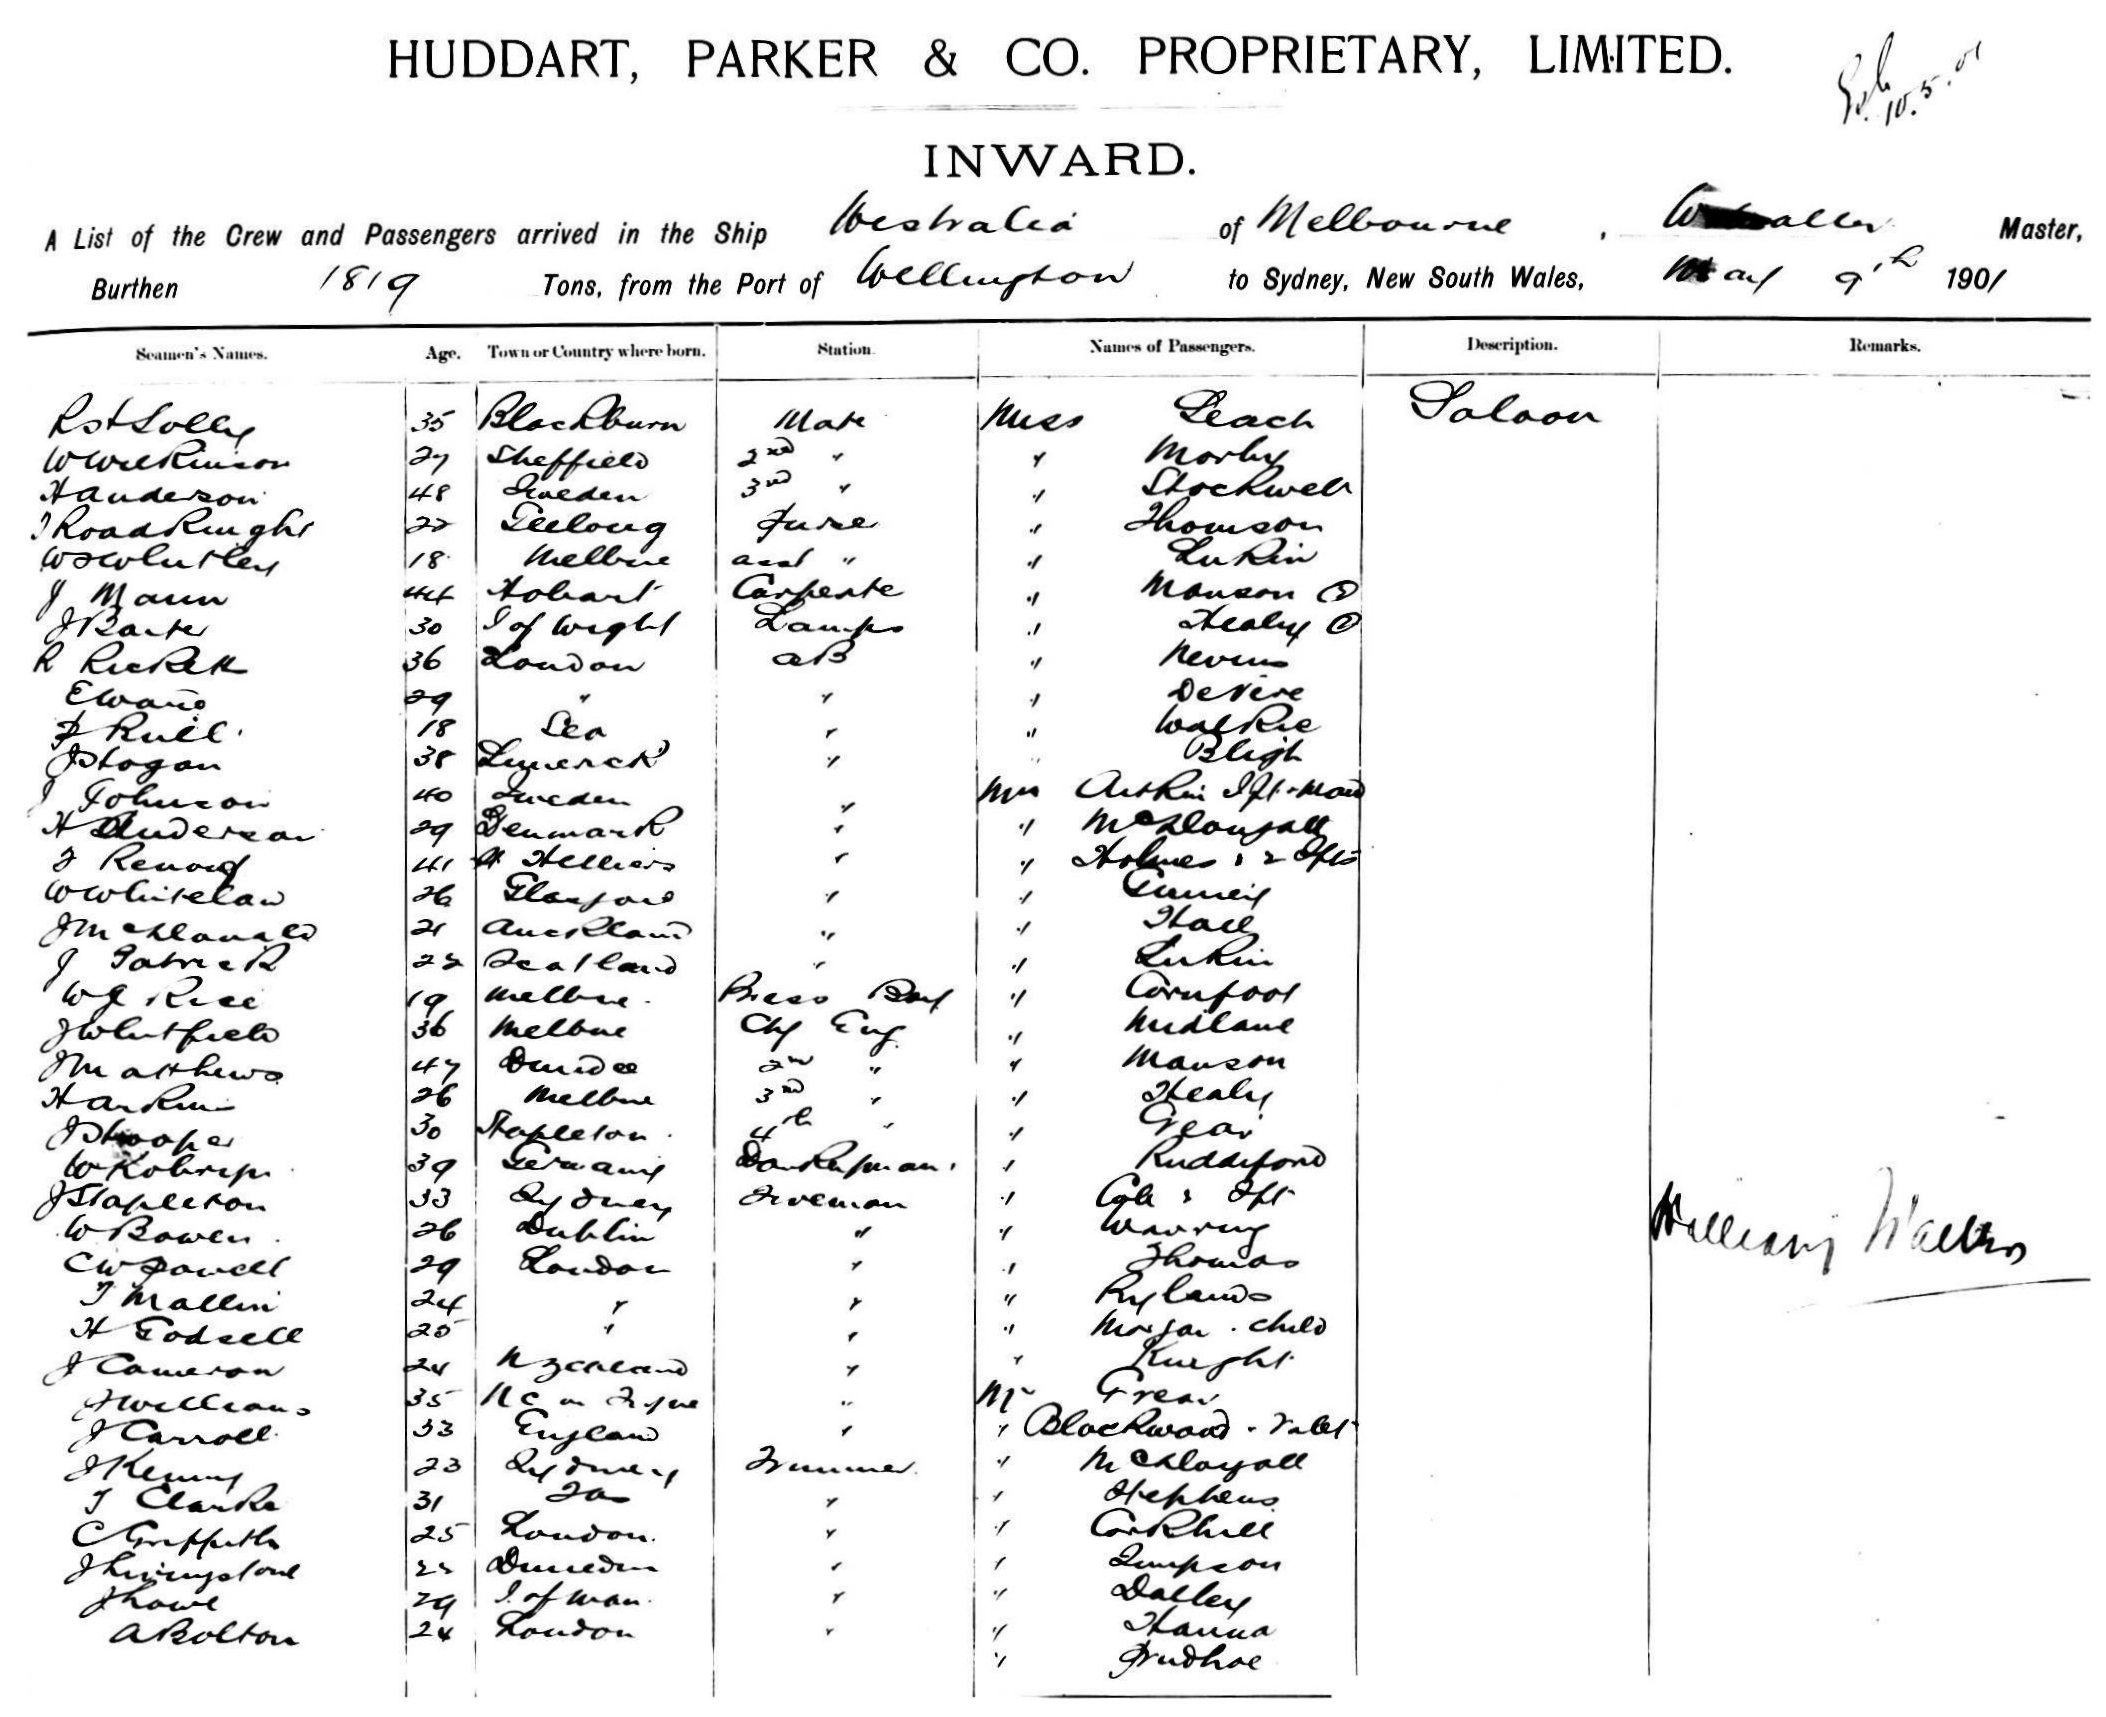 HUDDART, PARKER & CO. PROPRIETARY, LIMITED.
10.5.01
INWARD.
A List of the Crew and Passengers arrived in the Ship Westralia of Melbourne, W Waller Master,
Burthen 1819 Tons, from the Port of Wellington to Sydney, New South Wales, May 9th 1901
Seamen's Names. Age. Town or Country where born. Station. Names of Passengers. Description. Remarks.
Solly 35 Blackburn Mate Miss Leach Saloon
W Wilkinson 27 Sheffield 2nd " " Morby
H Anderson 48 Sweden 3rd " " Stockwell
T Roadknight 22 Geelong Purser " Thomson
Whitley 18 Melbne asst " " Lukin
J Mann 44 Hobart Carpente " Manson
J 30 I of Wight Lamps " Healy
R Rickett 36 London AB " Nevins
E Ward 29 " " " DeVere
18 Sea " " Walkie
J Hogan 38 Limerick " " Bligh
J Johnson 40 Sweden " Mrs
H Anderson 29 Denmark " " McDougall
41 St Helliers " " Holmes & 2
W Whitelaw 26 Glasgow " "
J McDonald 21 Auckland " " Hall
J Patrick 22 Scotland " " Lukin
W J Rice 19 Melbne. Boy " Cornfoot
J Whitfield 36 Melbne Chf Eng " Midlane
J Matthews 47 Dundee 2nd " " Manson
Harkin 26 Melbne 3rd " " Healy
J Hooper 30 Stapleton 4th " "
W 39 Germany Donkeyman. " Ruddiford
J Stapleton 33 Sydney Fireman "
W Bowen 26 Dublin " " Warring
C W Powell 29 London " " Thomas
T Mallin 24 " " " Rylands
H Godsell 25 " " " Morgan . child
J Cameron 24 N Zealand " " Knight
J Williams 35 N C on Tyne " Mr Grear
J Carroll 33 England " " Blackwood . Valet
J Kenny 23 Sydney Trimmer. " McDougall
T Clarke 31 Tas " " Stephens
C Griffiths 25 London. " " Corkhill
J Livingstone 22 Dunedin " " Simpson
J Lowe 29 I. of Man. " " Dalley
A Bolton 24 London " " Hanna
" Prudhoe
William Waller